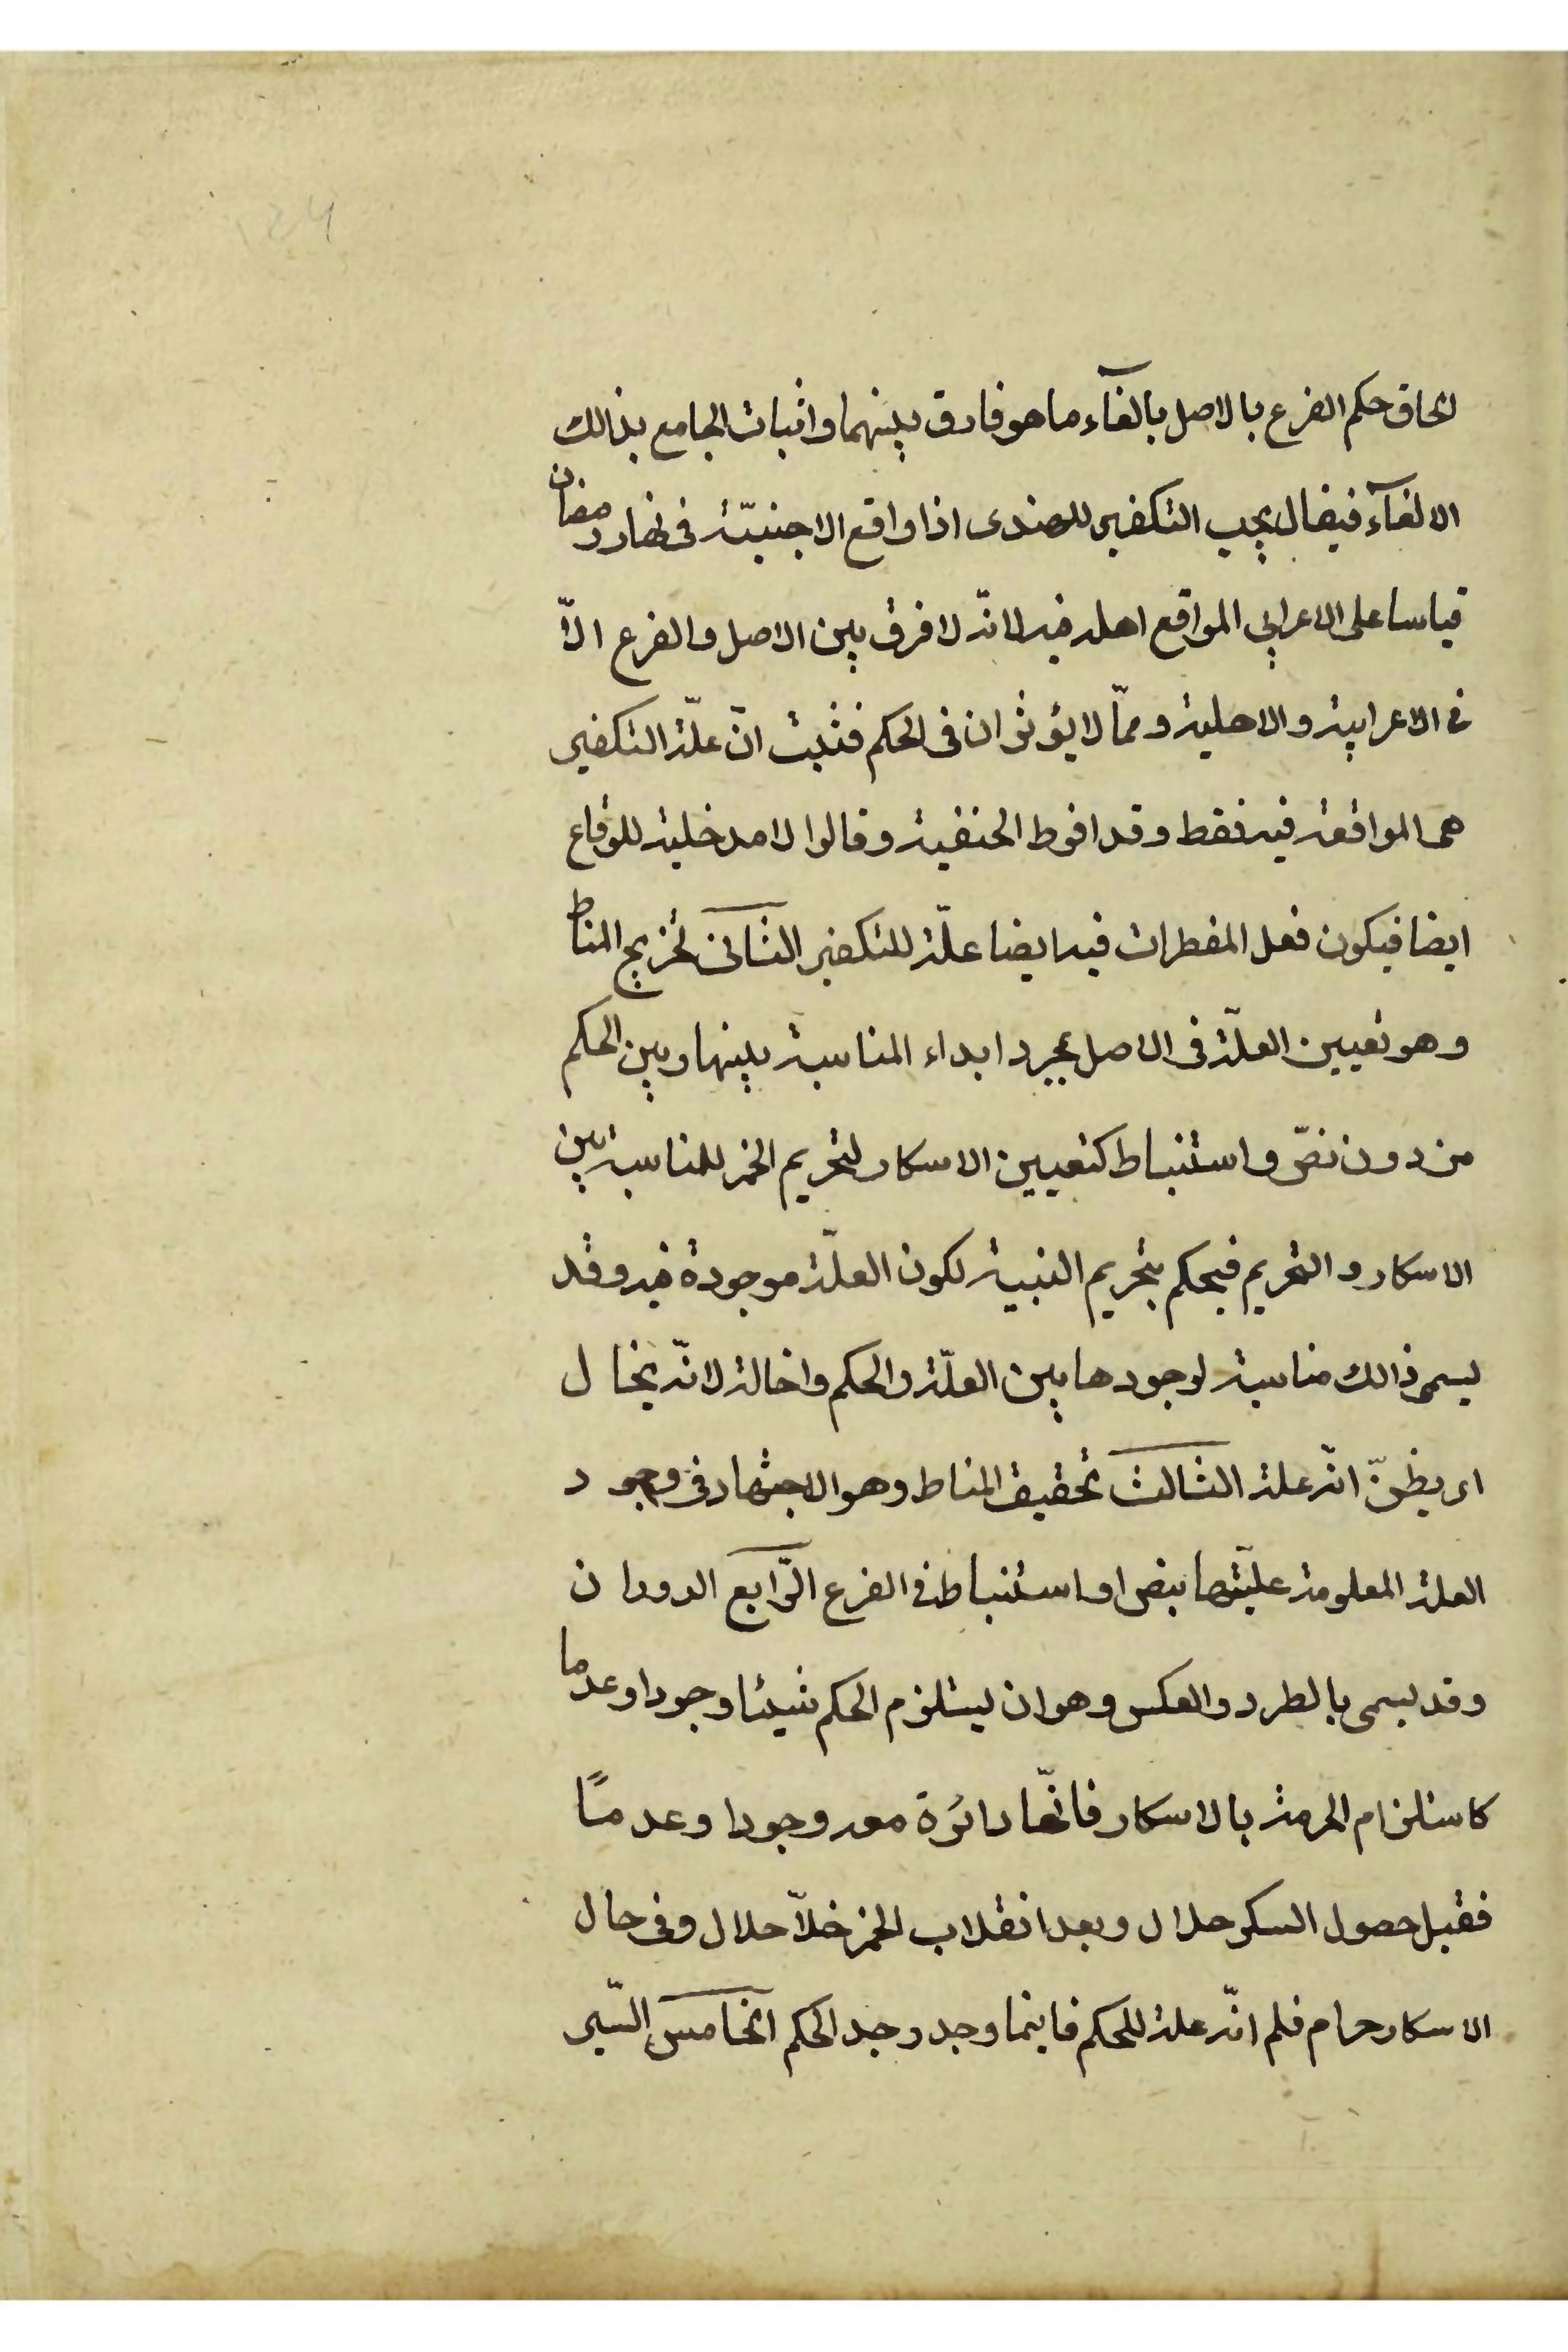 الحاق حكم الفرع بالاصل بالغآء ما هو فارق بينهما واثبات الجامع بذالك
الالغآء فيقال يجب التكفير للهندى اذا واقع الاجنبيّة فى نهار رمضان
قياسا على الاعرابي المواقع اهله فيه لانّه لا فرق بين الاصل والفرع الّا
فى الاعرابية والاهلية وممّا لا يؤثران فى الحكم فثبت انّ علّة التكفير
هى المواقعة فيه فقط وقد افرط الحنفية وقالوا لا مدخلية للوقاع
ايضا فيكون فعل المفطرات فيه ايضا علّة للتكفير الثانى تخريج المناط
وهو تعيين العلّة فى الاصل بمجرد ابداء المناسبة بينها وبين الحكم
من دون نصّ واستنباط كتعيين الاسكار لتحريم الخمر للمناسبة بين
الاسكار والتحريم فيحكم بتحريم النبيذ لكون العلّة موجودة فيه وقد
يسمى ذالك مناسبة لوجودها بين العلّة والحكم واخالة لانّه يخال
اى يظنّ انّه علة الثالث تحقيق المناط وهو الاجتهاد فى وجود
العلة المعلومة عليّتها بنص او استنباط فى الفرع الرّابع الدوران
وقد يسمى بالطرد والعكس وهو ان يستلزم الحكم شيئا وجودا وعدما
كاستلزام الحرمة بالاسكار فانّها دائرة معه وجودا وعدمًا
فقبل حصول السكر حلال وبعد انقلاب الخمر خلّا حلال وفى حال
الاسكار حرام فلم انّه علة للحكم فاينما وجد وجد الحكم الخامس السّير